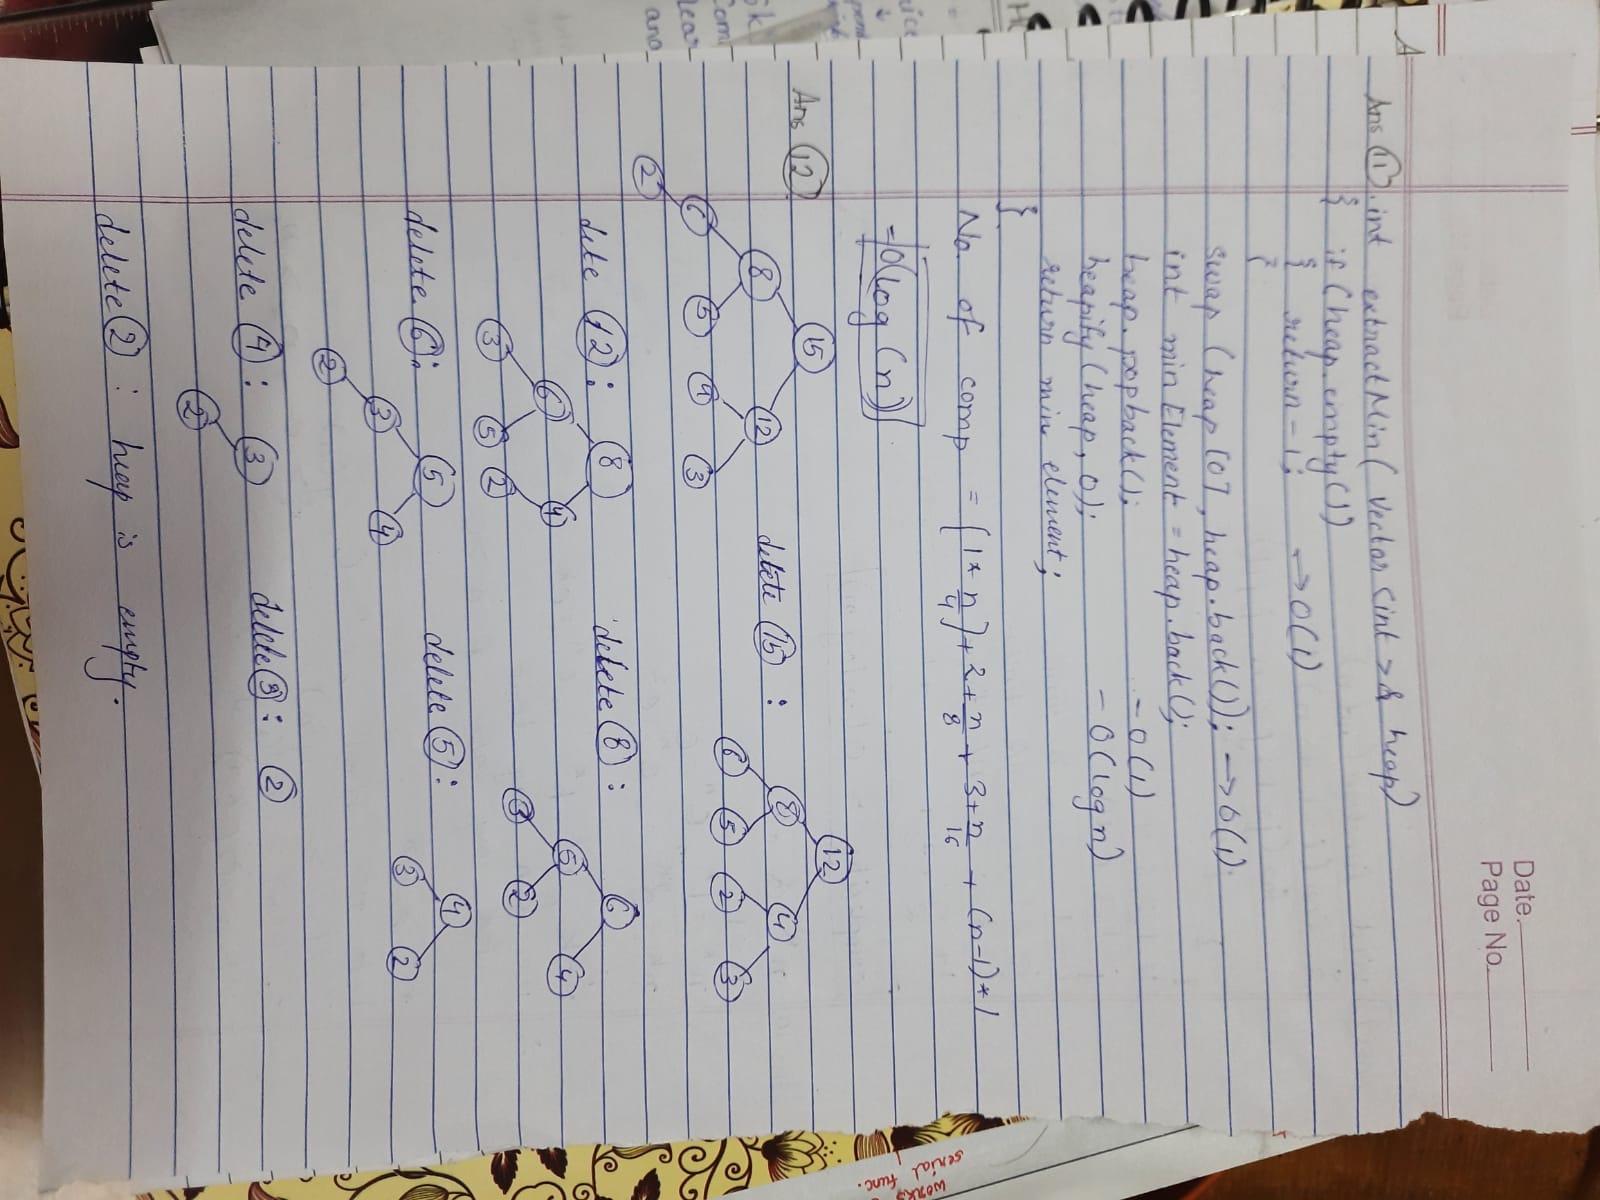 Date.
Page No.
Ans (11). int extractMin( Vector <int > & heap)
{ if (heap.empty())
{ return -1; → O(1)
}
swap (heap [0], heap.back()); → O(1).
int min Element = heap.back();
heap.popback(); - O(1)
heapify (heap, 0); - O(log n)
return min element;
}
No. of comp = (1* n/4) + 2 + n/8 + 3 + n/16 + (n-1)*1
= O(log (n))
Ans (12)
15
8 12
6 5 4 3
2
delete (15) :
12
8 4
6 5 2 3
dete (12) :
8
6 4
3 5 2
delete (8) :
6
5 4
3 2
delete (6) :
5
3 4
2
delete (5) :
4
3 2
delete (4) :
3
2
delete (3) : (2)
delete (2) : heap is empty.
serial func.
works